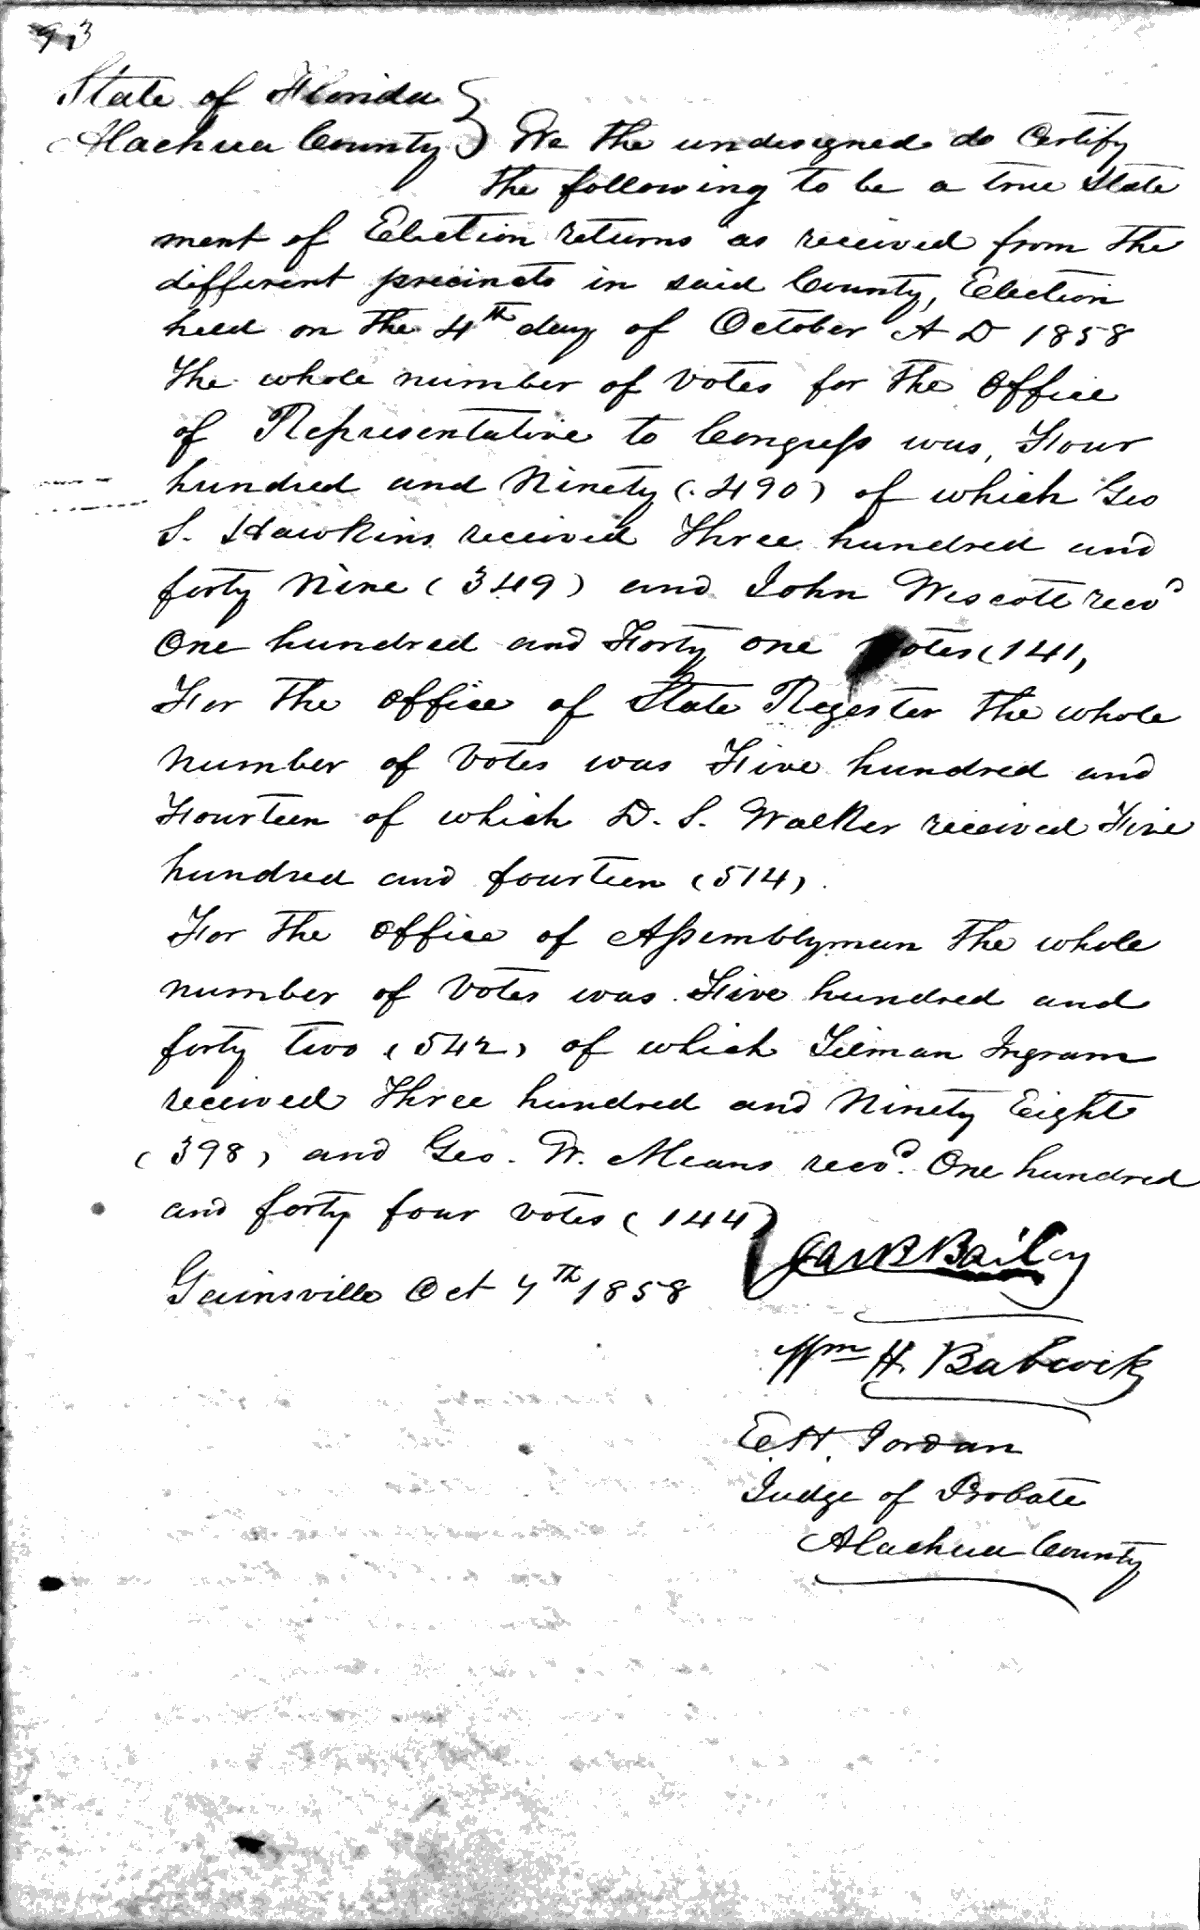 93
State of Florida
Alachua County } We the undesigned do Certify
the following to be a true State
ment of Election returns as received from the
different precincts in said County, Election
held on the 4th day of October A D 1858
The whole number of votes for the office
of Representative to Congress was, Four
hundred and Ninety (490) of which Geo
S. Hawkins received Three hundred and
forty Nine (349) and John Wescott recvd
One hundred and Forty one votes (141,
For the office of State Regester the whole
number of votes was Five hundred and
Fourteen of which D. S. Walker received Five
hundred and fourteen (514).
For the office of Assemblyman the whole
number of votes was Five hundred and
forty two (542) of which Tilman Ingram
received Three hundred and Ninety Eight
(398) and Geo. W. Means recvd. One hundred
and forty four votes (144)
Gainsville Oct 7th 1858
Jas B Bailey
Wm H. Babcock
E. H. Jordan
Judge of Probate
Alachua County